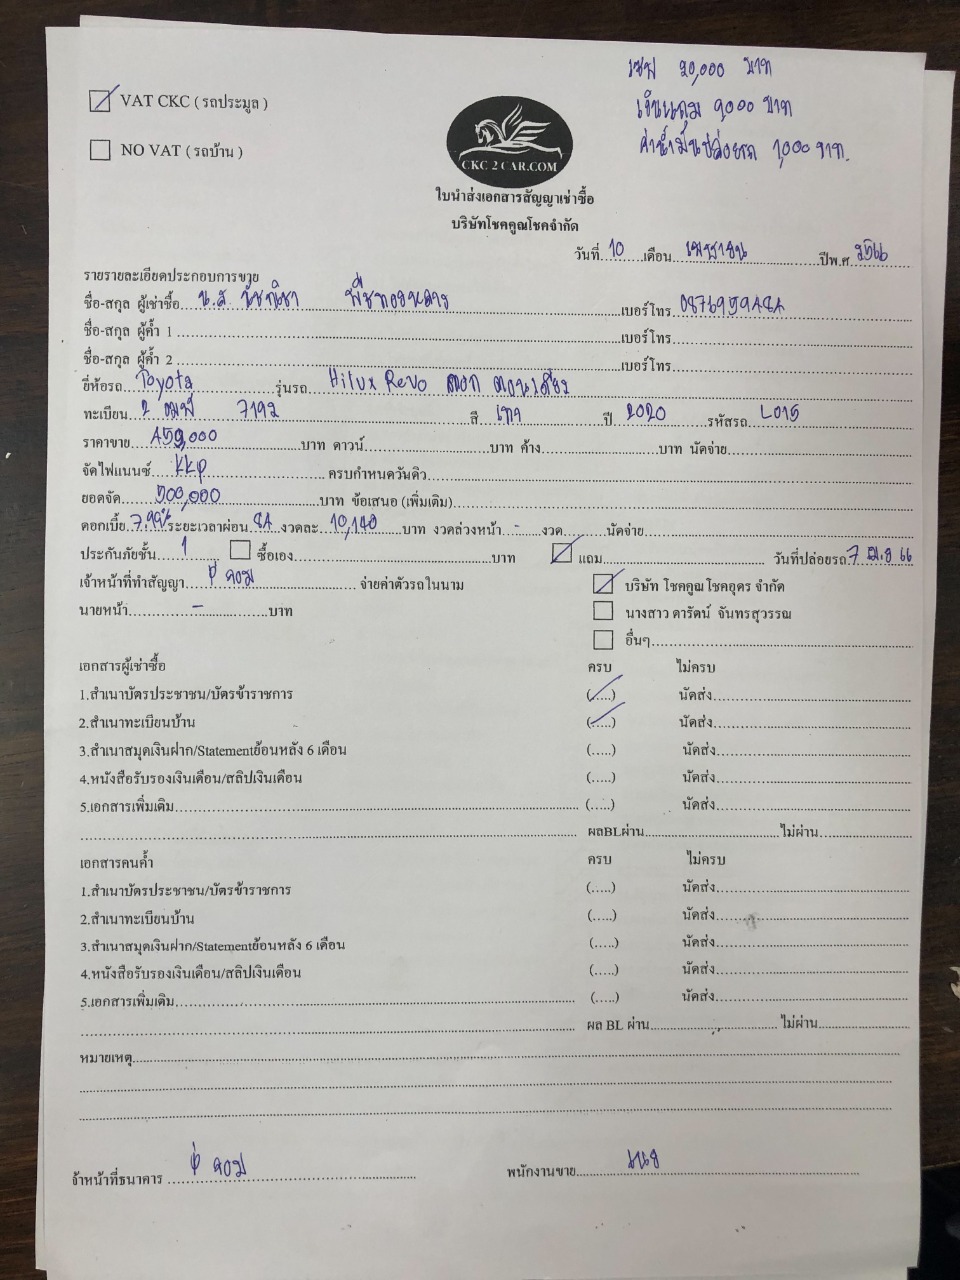 20,000 บาท
VAT CKC ( รถประมูล )
บาท
NO VAT ( รถบ้าน )
ค่าน้ำมันปล่อยรถ 1,000 บาท.
CKC 2 CAR.COM
ใบนำส่งเอกสารสัญญาเช่าซื้อ
บริษัทโชคคูณโชคจำกัด
วันที่ 10 เดือน เมษายน ปีพ.ศ. 2566
รายรายละเอียดประกอบการขาย
ชื่อ-สกุล ผู้เช่าซื้อ น.ส. เบอร์โทร
ชื่อ-สกุล ผู้ค้ำ 1 เบอร์โทร
ชื่อ-สกุล ผู้ค้ำ 2 เบอร์โทร
ยี่ห้อรถ Toyota รุ่นรถ Hilux Revo ตอนเดียว
ทะเบียน 7192 สี เทา ปี 2020 รหัสรถ L015
ราคาขาย 459,000 บาท ดาวน์ บาท ค้าง บาท นัดจ่าย
จัดไฟแนนซ์ KKP ครบกำหนดวันดิว
ยอดจัด 500,000 บาท ข้อเสนอ (เพิ่มเติม)
ดอกเบี้ย 7.99% ระยะเวลาผ่อน 84 งวดละ 10,140 บาท งวดล่วงหน้า - งวด นัดจ่าย
ประกันภัยชั้น 1 ซื้อเอง บาท แถม วันที่ปล่อยรถ 7 เม.ย 66
เจ้าหน้าที่ทำสัญญา พี่ จอม จ่ายค่าตัวรถในนาม บริษัท โชคคูณโชคอุดร จำกัด
นายหน้า - บาท นางสาว ดารัตน์ จันทรสุวรรณ
อื่นๆ
เอกสารผู้เช่าซื้อ ครบ ไม่ครบ
1.สำเนาบัตรประชาชน/บัตรข้าราชการ (.....) นัดส่ง
2.สำเนาทะเบียนบ้าน (.....) นัดส่ง
3.สำเนาสมุดเงินฝาก/Statementย้อนหลัง 6 เดือน (.....) นัดส่ง
4.หนังสือรับรองเงินเดือน/สลิปเงินเดือน (.....) นัดส่ง
5.เอกสารเพิ่มเติม (.....) นัดส่ง
ผลBLผ่าน ไม่ผ่าน
เอกสารคนค้ำ ครบ ไม่ครบ
1.สำเนาบัตรประชาชน/บัตรข้าราชการ (.....) นัดส่ง
2.สำเนาทะเบียนบ้าน (.....) นัดส่ง
3.สำเนาสมุดเงินฝาก/Statementย้อนหลัง 6 เดือน (.....) นัดส่ง
4.หนังสือรับรองเงินเดือน/สลิปเงินเดือน (.....) นัดส่ง
5.เอกสารเพิ่มเติม (.....) นัดส่ง
ผล BL ผ่าน ไม่ผ่าน
หมายเหตุ
จ้าหน้าที่ธนาคาร พี่ จอม พนักงานขาย